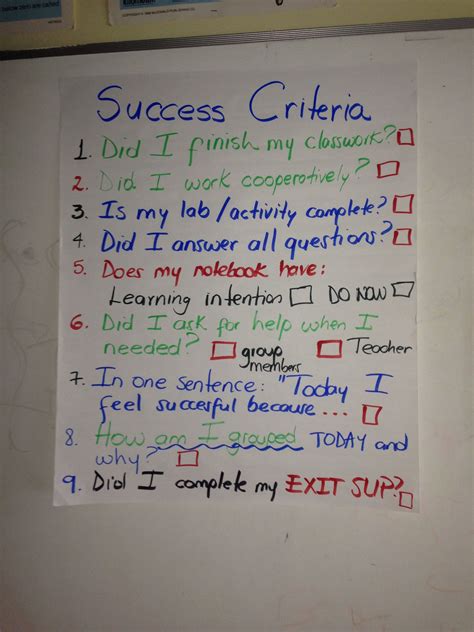 below zero are called
Success Criteria
1. Did I finish my classwork?
2. Did I work cooperatively?
3. Is my lab/activity complete?
4. Did I answer all questions?
5. Does my notebook have:
Learning intention DO NOW
6. Did I ask for help when I
needed? group members Teacher
7. In one sentence: "Today I
feel succesful because ...
8. How am I grouped TODAY and
why?
9. Did I complete my EXIT SLIP?